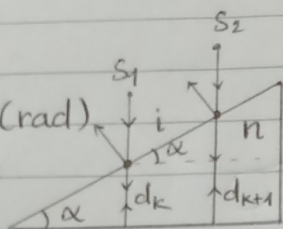 S₂
S₁
(rad) i n
α
α d_k d_{k+1}